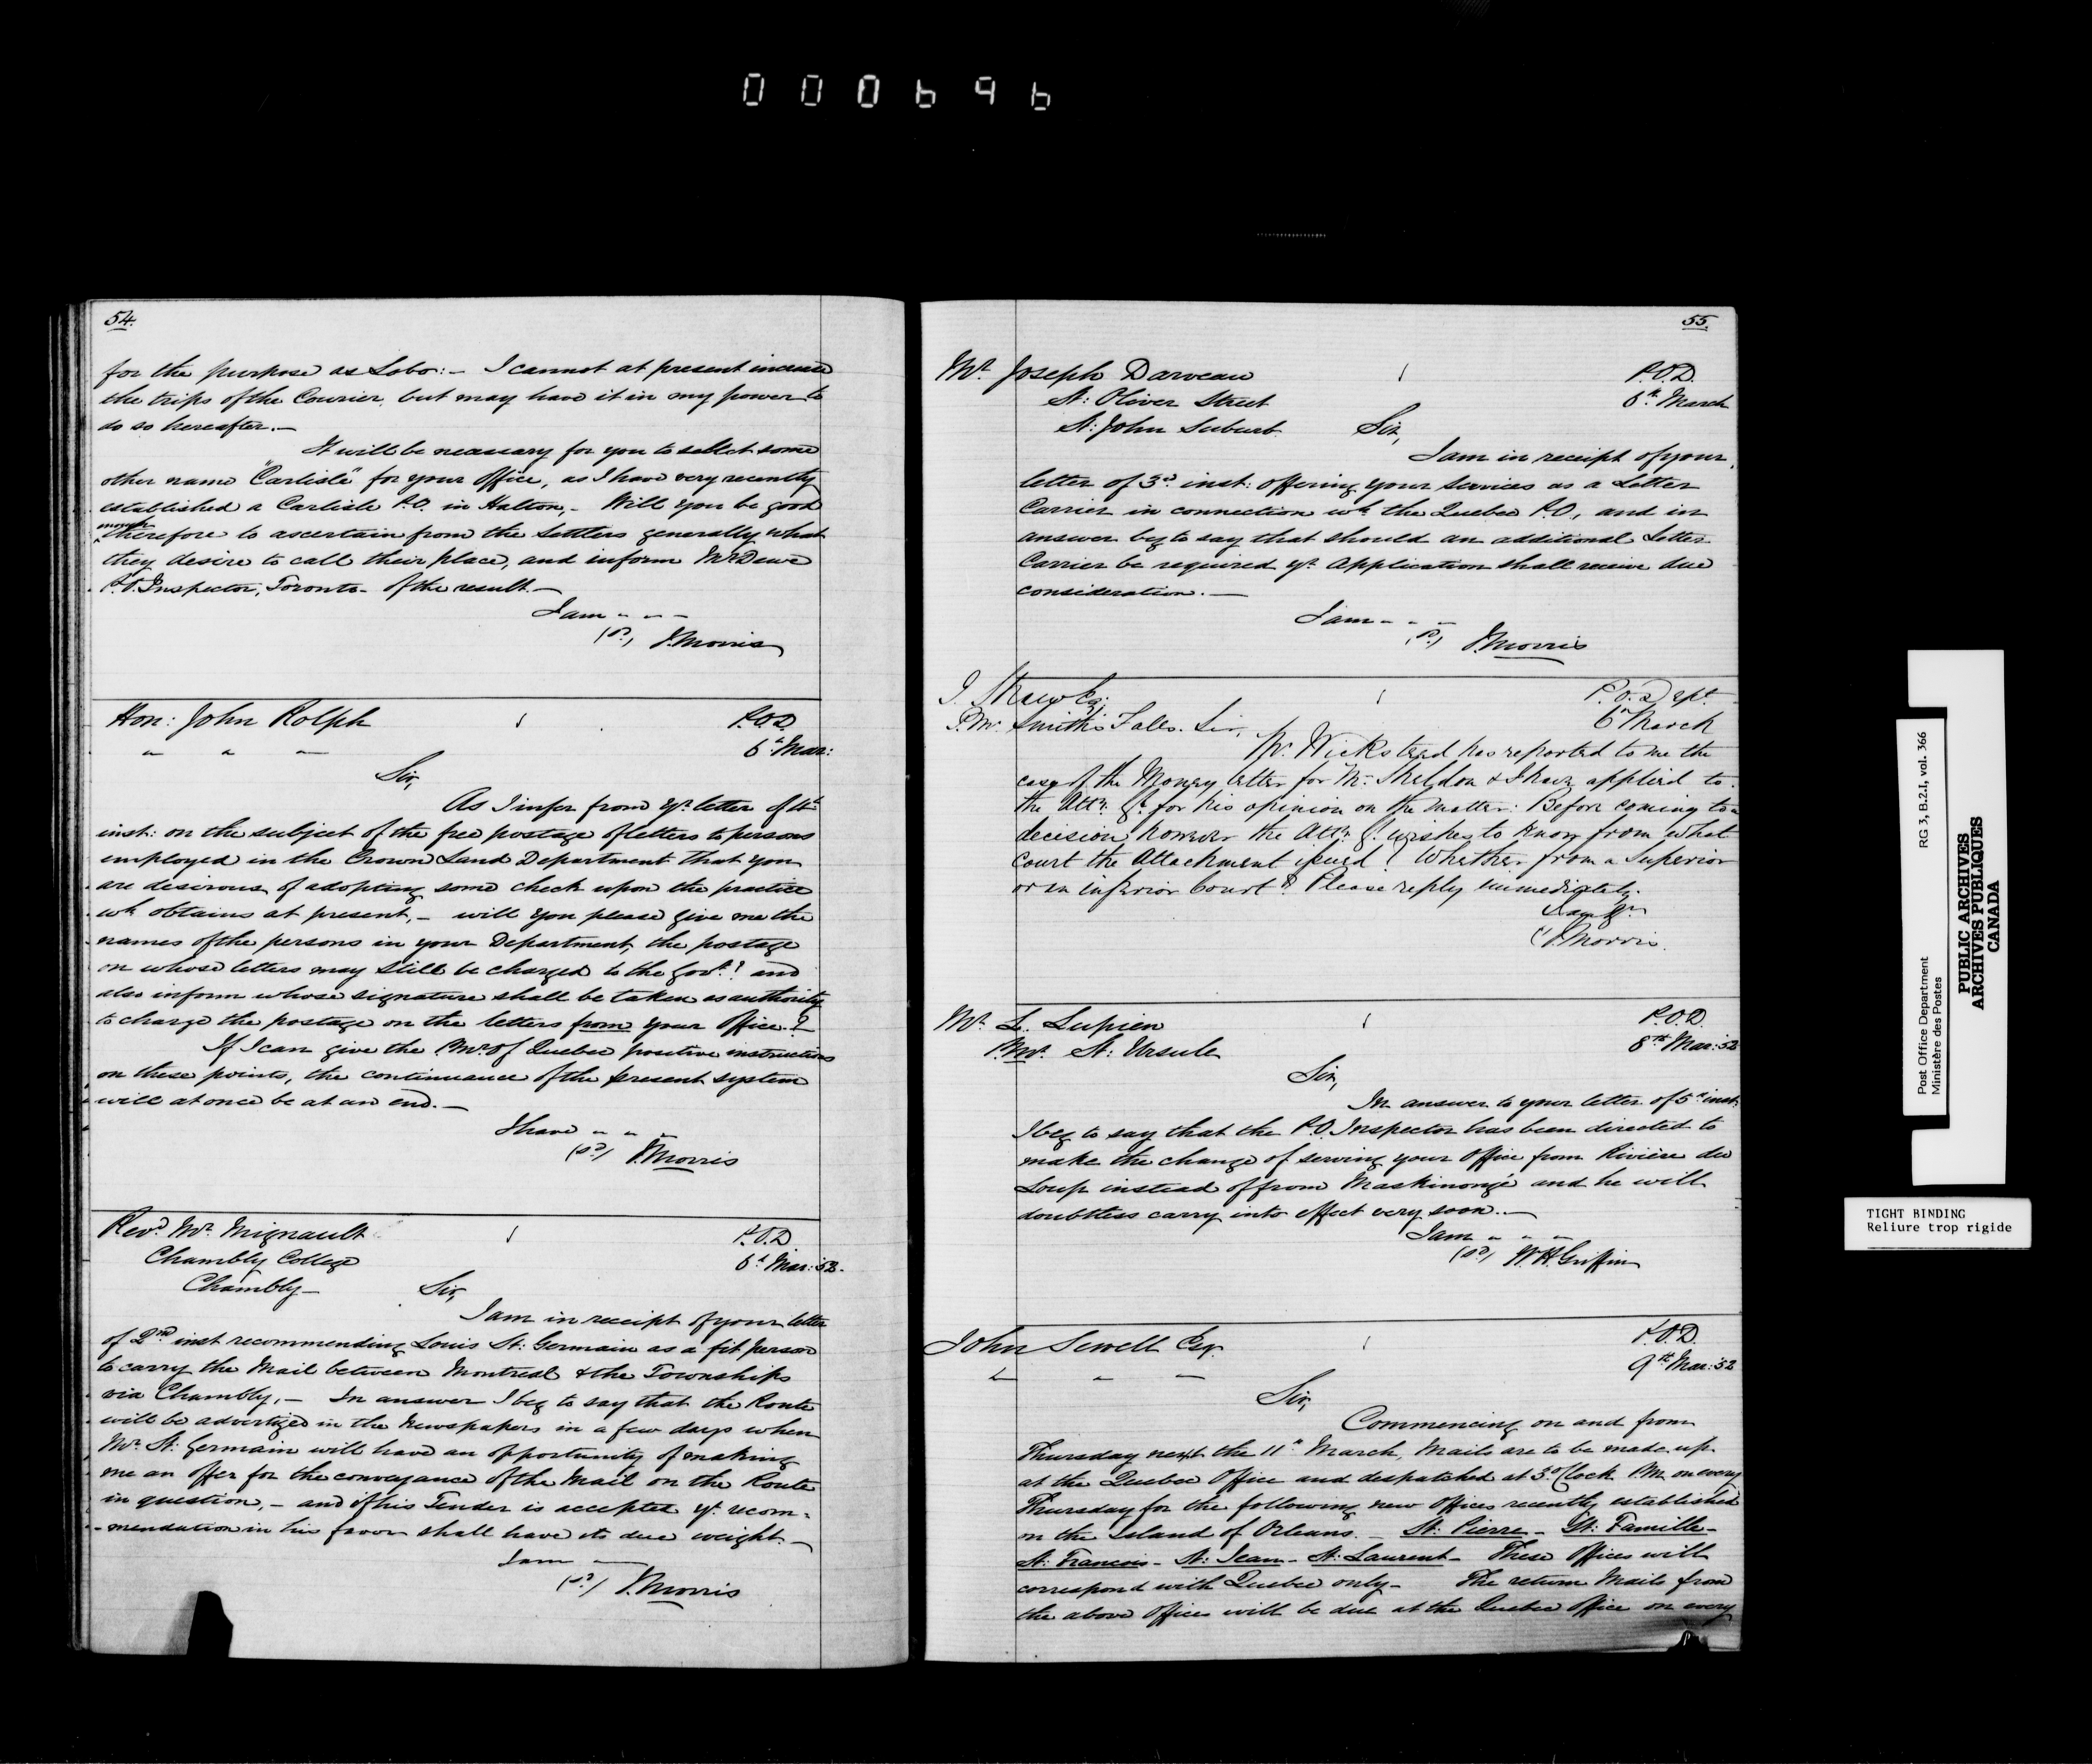 000696
54.
for the purpose as Lobo:- I cannot at present increase
the trips of the Courier, but may have it in my power to
do so hereafter.-
It will be necessary for you to select some
other name "Carlisle" for your Office, as I have very recently
established a Carlisle P.O. in Halton,- Will you be good
enough
therefore to ascertain from the Settlers generally what
they desire to call their place, and inform Mr Dewe
P.O. Inspector, Toronto- of the result.-
I am - - -
(sd) J. Morris
Hon: John Rolph
P.O.D
6th Mar:
Sir,
As I infer from yr letter of 4th
inst: on the subject of the free postage of letters to persons
employed in the Crown Land Department that you
are desirous of adopting some check upon the practice
wh obtains at present,- will you please give me the
names of the persons in your Department, the postage
on whose letters may still be charged to the Govt? and
also inform whose signature shall be taken as authority
to charge the postage on the letters from your Office?
If I can give the P.Mr of Quebec positive instructions
on these points, the continuance of the present system
will at once be at an end.-
I have - - -
(sd) J. Morris
Revd Mr Mignault
P.O.D
6th Mar: 52.
Chambly College
Chambly-
Sir,
I am in receipt of your letter
of 2nd inst recommending Louis St: Germain as a fit person
to carry the Mail between Montreal & the Townships
via Chambly,- In answer I beg to say that the Route
will be advertized in the Newspapers in a few days when
Mr St: Germain will have an opportunity of making
me an offer for the conveyance of the Mail on the Route
in question,- and if his Tender is accepted yr recom-
-mendation in his favor shall have its due weight.-
I am -
(sd) J. Morris
55.
Mr Joseph Darveau
P.O.D.
6th March
St: Oliver Street
St: John Suburb
Sir,
I am in receipt of your
letter of 3rd inst: offering your services as a Letter
Carrier in connection wh the Quebec P.O, and in
answer beg to say that should an additional Letter
Carrier be required yr Application shall receive due
consideration.-
I am - - -
(sd) J. Morris
J. Shaw Esq.
P.O. Dept
6th March
P.M. Smiths Falls. Sir,
Mr. Wicksteed has reported to me the
case of the Money letter for Mr. Sheldon & I have applied to
the Atty Gl for his opinion on the matter: Before coming to a
decision however the Atty Gl wishes to know from what
Court the Attachment issued? Whether from a Superior
or an inferior Court? Please reply immediately.
I am Yr
J. Morris.
Mr L. Lupien
P.O.D.
8th Mar: 52
P.Mr. St: Ursule
Sir,
In answer to your letter of 5th inst:
I beg to say that the P.O. Inspector has been directed to
make the change of serving your Office from Rivière du
Loup instead of from Maskinongé and he will
doubtless carry into effect very soon.-
I am - - -
(sd) W. H. Griffin
John Sewell Esq.
P.O.D.
9th Mar: 52
Sir,
Commencing on and from
Thursday next the 11th March, Mails are to be made up
at the Quebec Office and despatched at 3 o'Clock P.M. on every
Thursday for the following new Offices recently established
on the Island of Orleans.- St: Pierre- St: Famille-
St: Francois- St: Jean- St: Laurent- These Offices will
correspond with Quebec only- The return Mails from
the above Offices will be due at the Quebec Office on every
Post Office Department RG 3, B.2.I, vol. 366
Ministère des Postes
PUBLIC ARCHIVES
ARCHIVES PUBLIQUES
CANADA
TIGHT BINDING
Reliure trop rigide